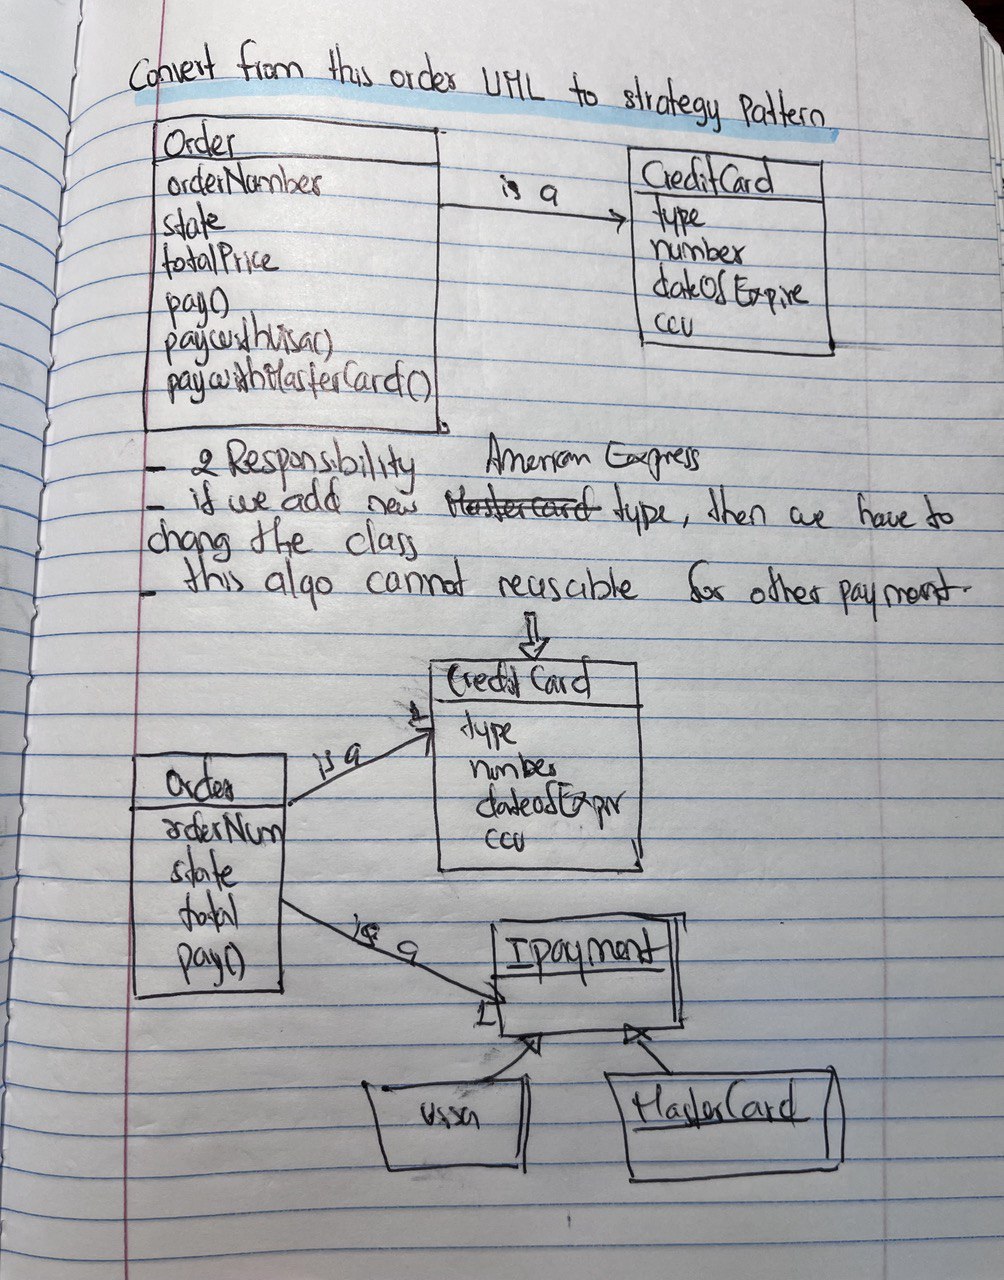 Convert from this order UML to strategy Pattern
Order
orderNumber
state
totalPrice
pay()
paywithVisa()
paywithMasterCard()
is a
CreditCard
type
number
dateOfExpire
ccv
- 2 Responsibility
American Express
- if we add new Mastercard type, then we have to
chang the class
- this algo cannot reuscible for other payment.
Credit Card
type
number
dateofExpir
ccv
is a
1
Order
orderNum
state
total
pay()
is a
1
Ipayment
visa
MasterCard